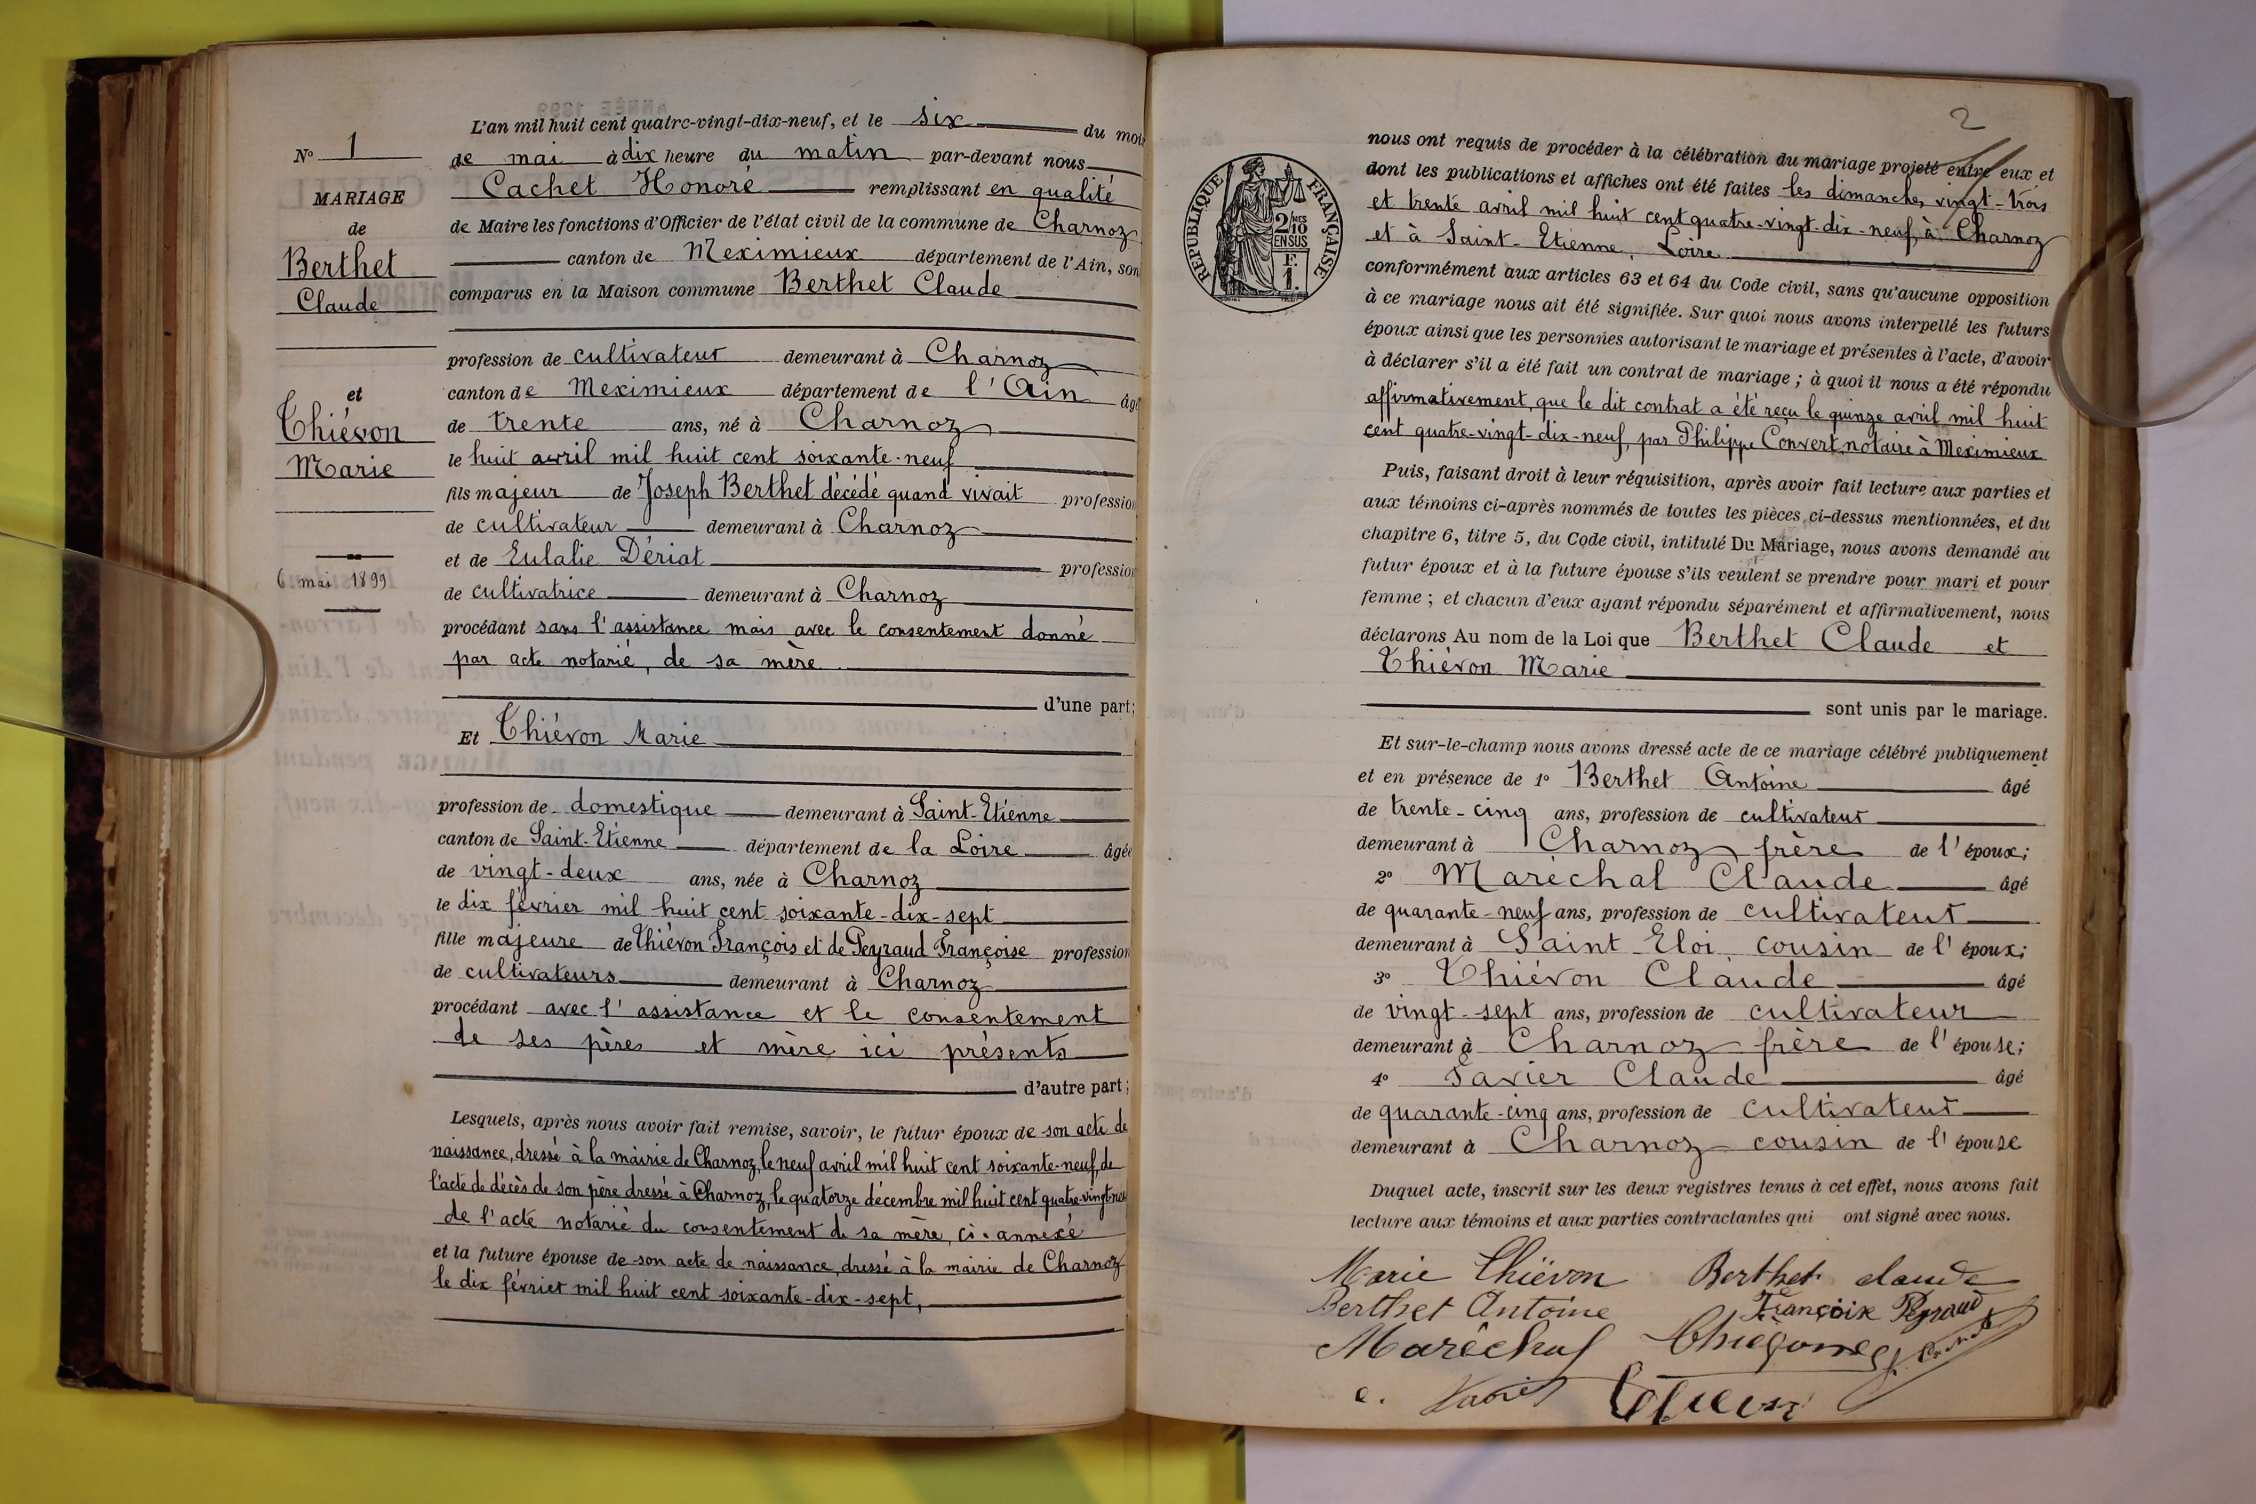 L'an mil huit cent quatre-vingt-dix-neuf, et le six du mois
N° 1
de mai à dix heure du matin par-devant nous
MARIAGE
Cachet Honoré remplissant en qualité
de
de Maire les fonctions d'Officier de l'état civil de la commune de Charnoz
Berthet
canton de Meximieux département de l'Ain, son
Claude
comparus en la Maison commune Berthet Claude
profession de cultivateur demeurant à Charnoz
et
canton de Meximieux département de l'Ain âgé
Thiévon
de trente ans, né à Charnoz
Marie
le huit avril mil huit cent soixante-neuf
fils majeur de Joseph Berthet décédé quand vivait profession
de cultivateur demeurant à Charnoz
et de Eulalie Dériat profession
6 mai 1899
de cultivatrice demeurant à Charnoz
procédant sans l'assistance mais avec le consentement donné
par acte notarié, de sa mère
d'une part;
Et Thiévon Marie
profession de domestique demeurant à Saint-Etienne
canton de Saint-Etienne département de la Loire âgée
de vingt-deux ans, née à Charnoz
le dix février mil huit cent soixante-dix-sept
fille majeure de Thiévon François et de Peyraud Françoise profession
de cultivateurs demeurant à Charnoz
procédant avec l'assistance et le consentement
de ses pères et mère ici présents
d'autre part;
Lesquels, après nous avoir fait remise, savoir, le futur époux de son acte de
naissance, dressé à la mairie de Charnoz, le neuf avril mil huit cent soixante-neuf, de
l'acte de décès de son père dressé à Charnoz, le quatorze décembre mil huit cent quatre-vingt-neuf
de l'acte notarié du consentement de sa mère, ci-annexé
et la future épouse de son acte de naissance, dressé à la mairie de Charnoz
le dix février mil huit cent soixante-dix-sept,
2
RÉPUBLIQUE FRANÇAISE
2/10 MES
EN SUS
F. 1.
nous ont requis de procéder à la célébration du mariage projeté entre eux et
dont les publications et affiches ont été faites les dimanches vingt-trois
et trente avril mil huit cent quatre-vingt-dix-neuf, à Charnoz
et à Saint-Etienne, Loire
conformément aux articles 63 et 64 du Code civil, sans qu'aucune opposition
à ce mariage nous ait été signifiée. Sur quoi nous avons interpellé les futurs
époux ainsi que les personnes autorisant le mariage et présentes à l'acte, d'avoir
à déclarer s'il a été fait un contrat de mariage; à quoi il nous a été répondu
affirmativement, que le dit contrat a été reçu le quinze avril mil huit
cent quatre-vingt-dix-neuf, par Philippe Convert, notaire à Meximieux
Puis, faisant droit à leur réquisition, après avoir fait lecture aux parties et
aux témoins ci-après nommés de toutes les pièces ci-dessus mentionnées, et du
chapitre 6, titre 5, du Code civil, intitulé Du Mariage, nous avons demandé au
futur époux et à la future épouse s'ils veulent se prendre pour mari et pour
femme; et chacun d'eux ayant répondu séparément et affirmativement, nous
déclarons Au nom de la Loi que Berthet Claude et
Thiévon Marie
sont unis par le mariage.
Et sur-le-champ nous avons dressé acte de ce mariage célébré publiquement
et en présence de 1° Berthet Antoine âgé
de trente-cinq ans, profession de cultivateur
demeurant à Charnoz frère de l'époux;
2° Maréchal Claude âgé
de quarante-neuf ans, profession de cultivateur
demeurant à Saint Eloi, cousin de l'époux;
3° Thiévon Claude âgé
de vingt-sept ans, profession de cultivateur
demeurant à Charnoz frère de l'épouse;
4° Savier Claude âgé
de quarante-cinq ans, profession de cultivateur
demeurant à Charnoz cousin de l'épouse
Duquel acte, inscrit sur les deux registres tenus à cet effet, nous avons fait
lecture aux témoins et aux parties contractantes qui ont signé avec nous.
Marie Thiévon Berthet claude
Berthet Antoine Françoise Peyraud
Maréchal
c.